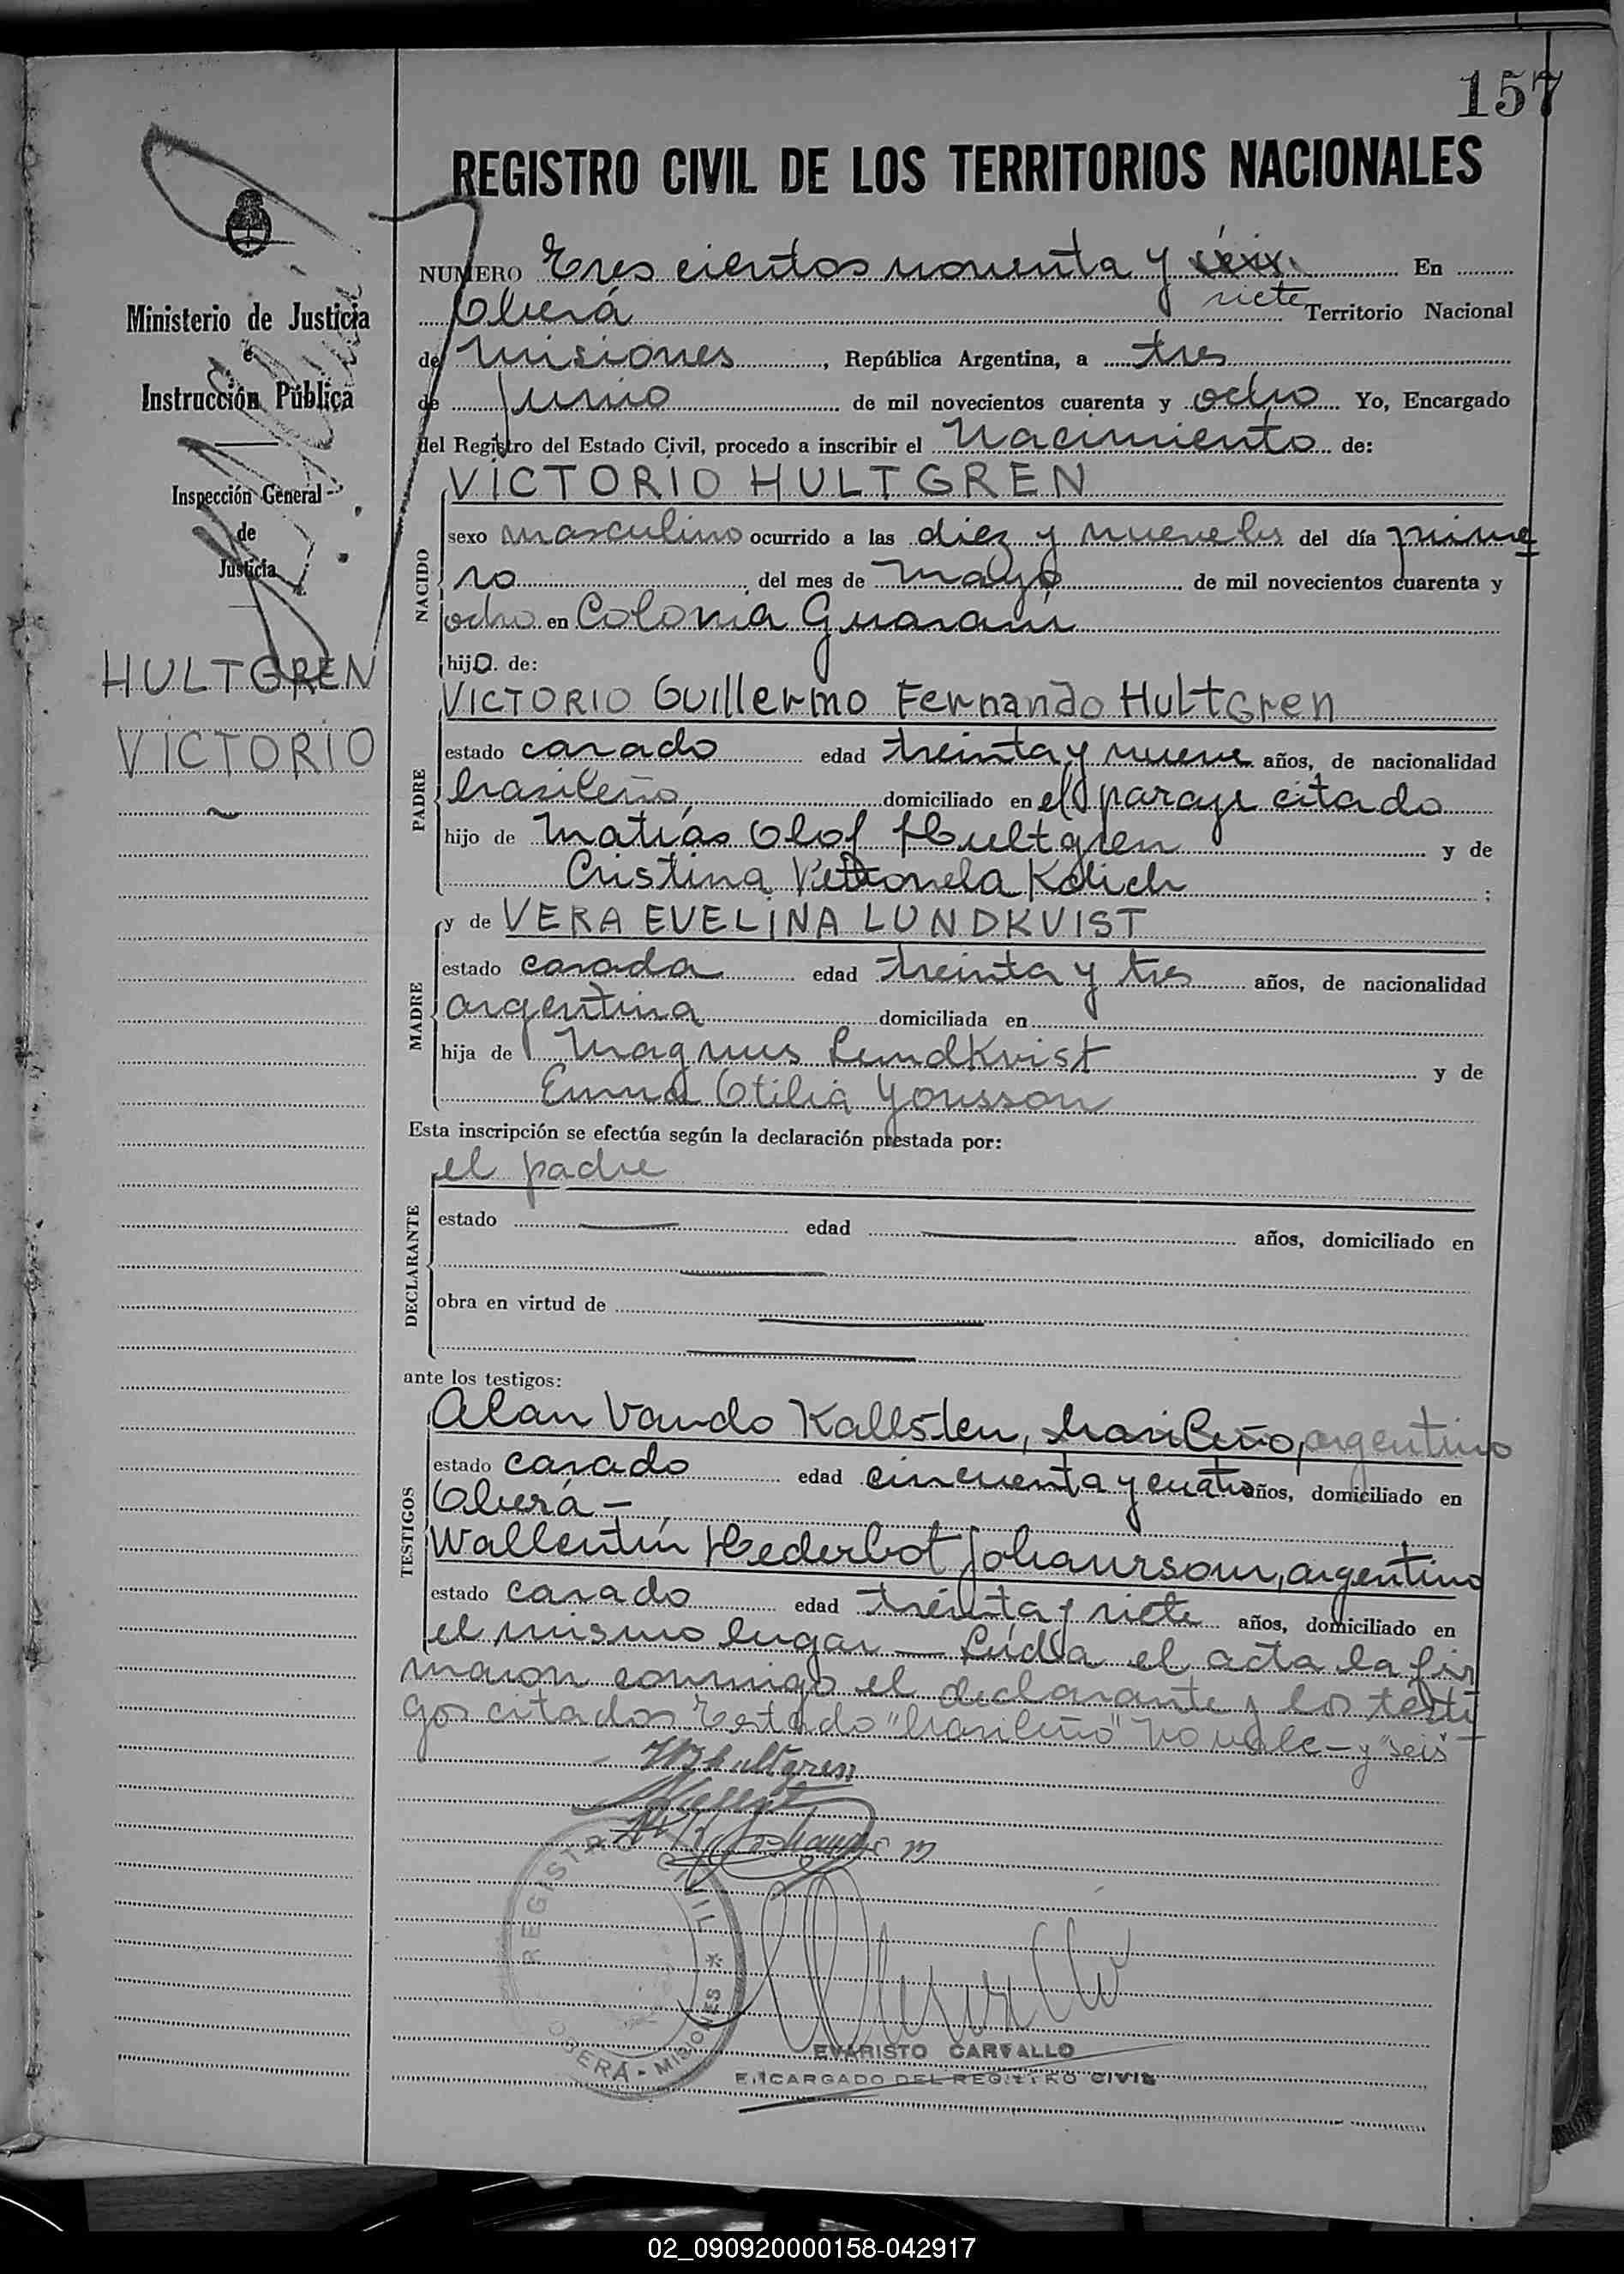 157
REGISTRO CIVIL DE LOS TERRITORIOS NACIONALES
Ministerio de Justicia
e
Instrucción Pública
Inspección General
de
Justicia
HULTGREN
VICTORIO
NUMERO Tres cientos noventa y seis. En
Oberá siete Territorio Nacional
de Misiones, República Argentina, a tres
de Junio de mil novecientos cuarenta y ocho Yo, Encargado
del Registro del Estado Civil, procedo a inscribir el Nacimiento de:
VICTORIO HULTGREN
NACIDO
sexo masculino ocurrido a las diez y nueve hs del día prime
ro del mes de Mayo de mil novecientos cuarenta y
ocho en Colonia Guaraní
hijo de:
VICTORIO Guillermo Fernando HultGren
PADRE
estado casado edad treinta y nueve años, de nacionalidad
brasileño domiciliado en el paraje citado
hijo de Matías Olof Hultgren y de
Cristina Petronela Kölich ;
y de VERA EVELINA LUNDKVIST
MADRE
estado casada edad treinta y tres años, de nacionalidad
argentina domiciliada en
hija de Magnus Lundkvist y de
Emma Otilia Yonsson
Esta inscripción se efectúa según la declaración prestada por:
el padre
DECLARANTE
estado edad años, domiciliado en
obra en virtud de
ante los testigos:
Alan Vando Kallsten, brasileño, argentino
TESTIGOS
estado casado edad cincuenta y cuatro años, domiciliado en
Oberá -
Wallentín Hederbot Johaursom, argentino
estado casado edad treinta y siete años, domiciliado en
el mismo lugar — Leída el acta la fir
maron conmigo el declarante y los testi
gos citados Testado "brasileño" No vale - y "seis"
REGISTRO CIVIL * OBERÁ - MISIONES
EVARISTO CARVALLO
ENCARGADO DEL REGISTRO CIVIL
02_090920000158-042917